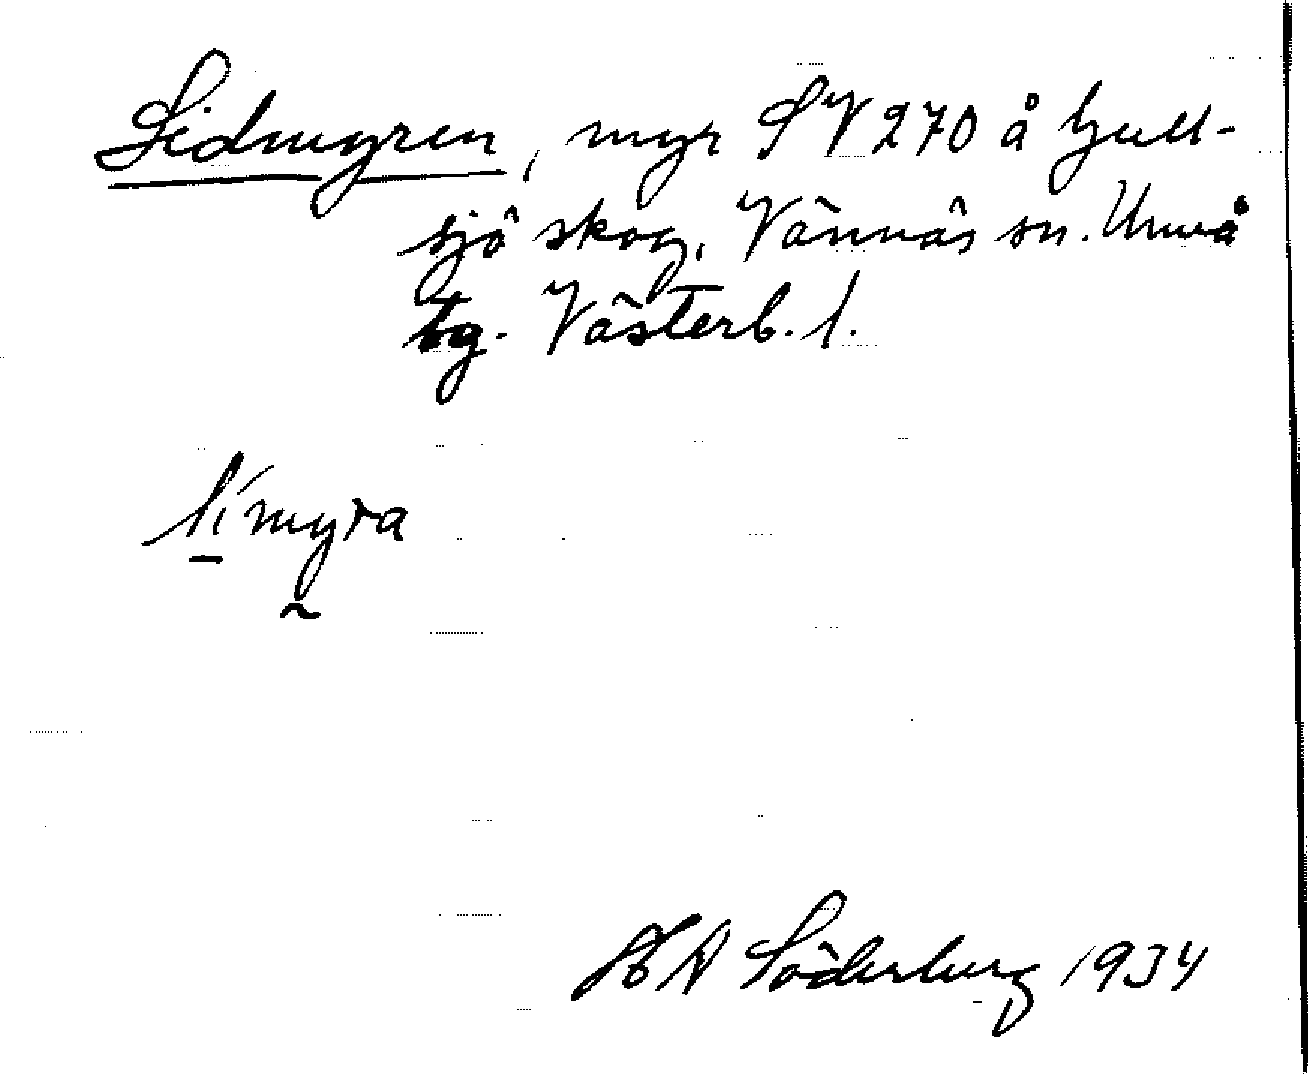 Lidmyren, myr SV 270 å Gull-
sjö skog, Vännäs sn. Umeå
tg. Västerb. l.
límyra
Söderberg 1934